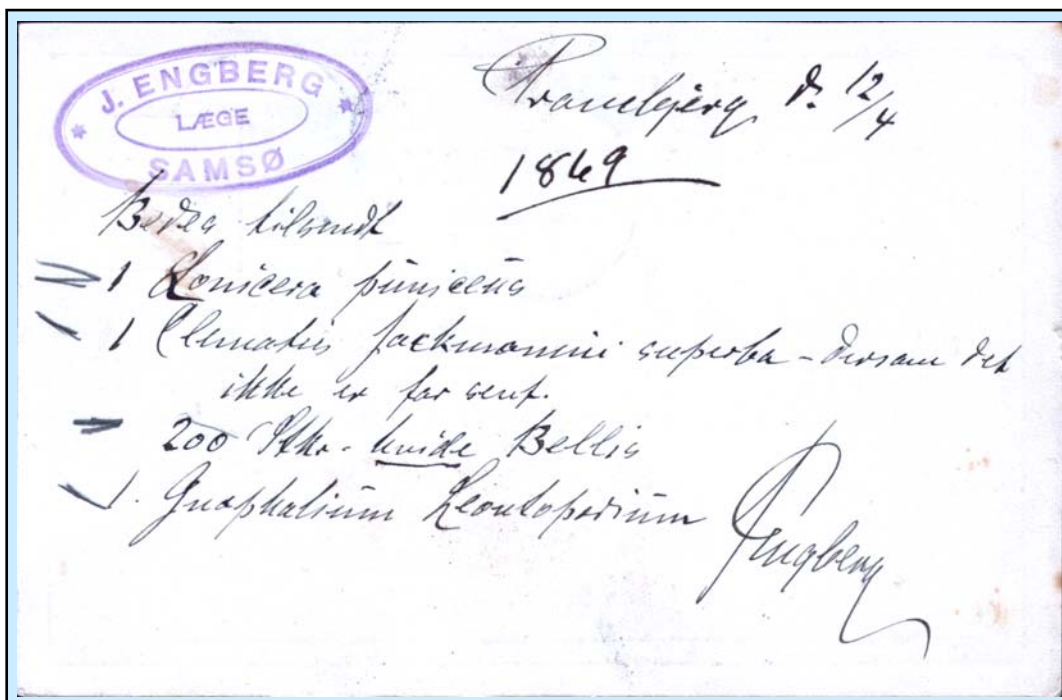 J. ENGBERG
LÆGE
SAMSØ
Tranebjerg d. 12/4
1869
Bedes tilsendt
1 Lonicera puniceus
1 Clematis Jackmanni superba - dersom det
ikke er for sent.
200 Stk. hvide Bellis
1. Gnaphalium Leontopodium
Engberg